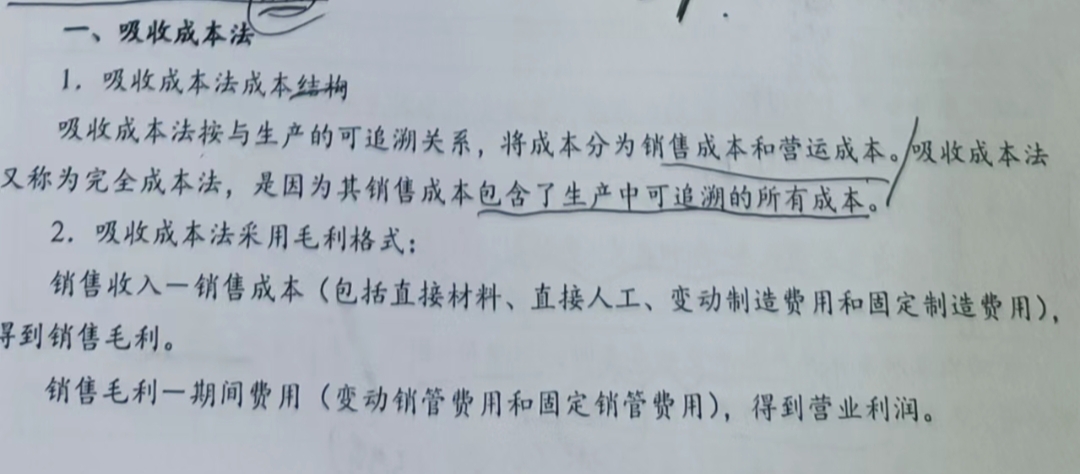 一、吸收成本法
1. 吸收成本法成本结构
吸收成本法按与生产的可追溯关系，将成本分为销售成本和营运成本。吸收成本法
又称为完全成本法，是因为其销售成本包含了生产中可追溯的所有成本。
2. 吸收成本法采用毛利格式：
销售收入－销售成本（包括直接材料、直接人工、变动制造费用和固定制造费用），
得到销售毛利。
销售毛利－期间费用（变动销管费用和固定销管费用），得到营业利润。